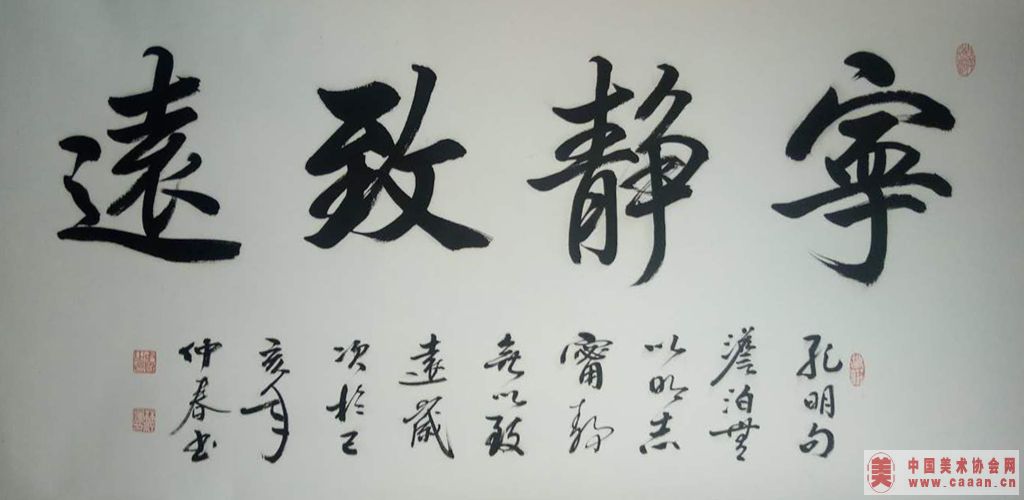 寧静致遠
孔明句
澹泊無
以明志
甯静
無以致
遠歲
次於己
亥年
仲春书
美
中国美术协会网
www.caaan.cn